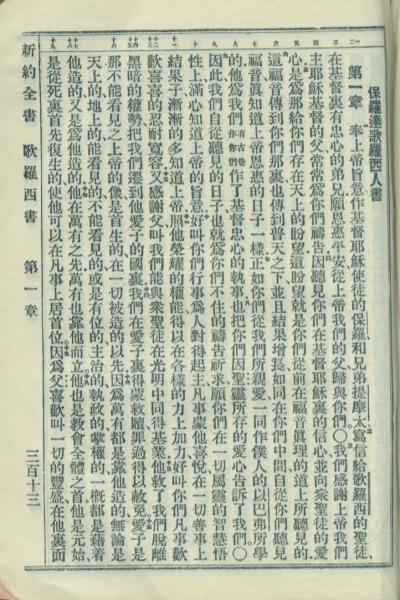 保羅達歌羅西人書
第一章　奉上帝旨意作基督耶穌使徒的保羅、和兄弟提摩太、寫信給歌羅西的聖徒、
在基督裏有忠心的弟兄、願恩惠平安從上帝我們的父歸與你們〇我們感謝上帝我們
主耶穌基督的父、常常爲你們禱告、因聽見你們在基督耶穌裏的信心、並向衆聖徒的愛
心、是爲那給你們存在天上的盼望、這盼望就是你們從前在福音眞理的道上所聽見的、
這福音傳到你們那裏、也傳到普天之下、並且結果增長、如同在你們中間、自從你們聽見
福音、眞知道上帝恩惠的日子一樣、正如你們從我們所親愛、一同作僕人的以巴弗所學
的、他爲我們有古卷作你們作了基督忠心的執事、也把你們因聖靈所存的愛心告訴了我們〇
因此我們自從聽見的日子、也就爲你們不住的禱告祈求、願你們在一切屬靈的智慧悟
性上、滿心知道上帝的旨意、好叫你們行事爲人、對得起主、凡事蒙他喜悅、在一切善事上
結果子、漸漸的多知道上帝、照他榮耀的權能、得以在各樣的力上加力、好叫你們凡事歡
歡喜喜的忍耐寬容、又感謝父、叫我們能與衆聖徒在光明中同得基業、他救了我們脫離
黑暗的權勢、把我們遷到他愛子的國裏、我們在愛子裏得蒙救贖、罪過得以赦免、愛子是
那不能看見之上帝的像、是首生的、在一切被造的以先、因爲萬有都是靠他造的、無論是
天上的、地上的、能看見的、不能看見的、或是有位的、主治的、執政的、掌權的、一槪都是藉着
他造的、又是爲他造的、他在萬有之先、萬有也靠他而立、他也是教會全體之首、他是元始、
是從死裏首先復生的、使他可以在凡事上居首位、因爲父喜歡叫一切的豐盛在他裏面
新約全書　歌羅西書　第一章　三百十三